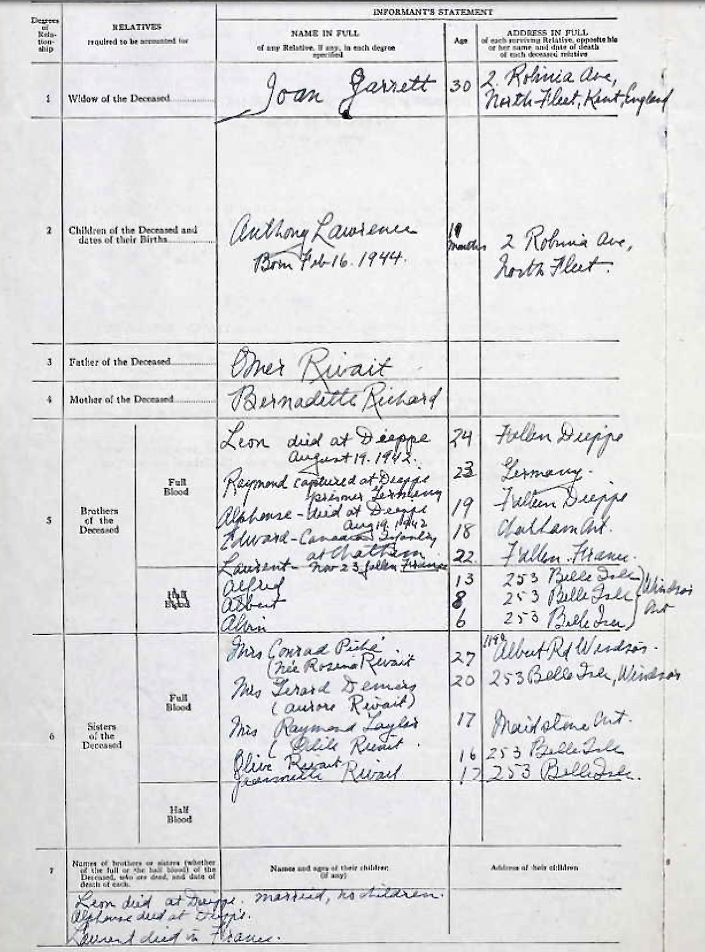 INFORMANT'S STATEMENT
Degrees of Rela-tion-ship
RELATIVES
required to be accounted for
NAME IN FULL
of any Relative, if any, in each degree specified
Age
ADDRESS IN FULL
of each surviving Relative, opposite his or her name and date of death of each deceased relative
1 Widow of the Deceased Joan Garrett 30 2 Robinia Ave,
North Fleet, Kent, England
2 Children of the Deceased and
dates of their Births
Anthony Lawrence months 2 Robinia Ave,
Born Feb 16. 1944. North Fleet.
3 Father of the Deceased Omer Rivait
4 Mother of the Deceased Bernadette Richard
5 Brothers of the Deceased
Full Blood
Leon died at Dieppe 24 Fallen Dieppe
August 19. 1942.
Raymond captured at Dieppe 23 Germany.
prisoner Germany
Alphonse - died at Dieppe 19 Fallen Dieppe
Aug 19. 1942
Edward - Canadian Infantry 18 Chatham Ont.
at Chatham
Laurent - Nov 23 fallen France 22. Fallen France.
Half Blood
Alfred 13 253 Belle Isle
Albert 8 253 Belle Isle Windsor
Alvin 6 253 Belle Isle Ont
6 Sisters of the Deceased
Full Blood
Mrs Conrad Piché 27 Albert Rd Windsor.
(née Rosena Rivait
Mrs Gerard Demers 20 253 Belle Isle, Windsor
(Aurore Rivait)
Mrs Raymond Taylor 17 Maidstone Ont.
( Rivait.
Olive Rivait 16 253 Belle Isle
Jeannette Rivait 253 Belle Isle.
Half Blood
7 Names of brothers or sisters (whether of the full or the half blood) of the Deceased, who are dead, and date of death of each.
Names and ages of their children
(if any)
Address of their children
Leon died at Dieppe. married, no children.
Alphonse died at Dieppe.
Laurent died in France.